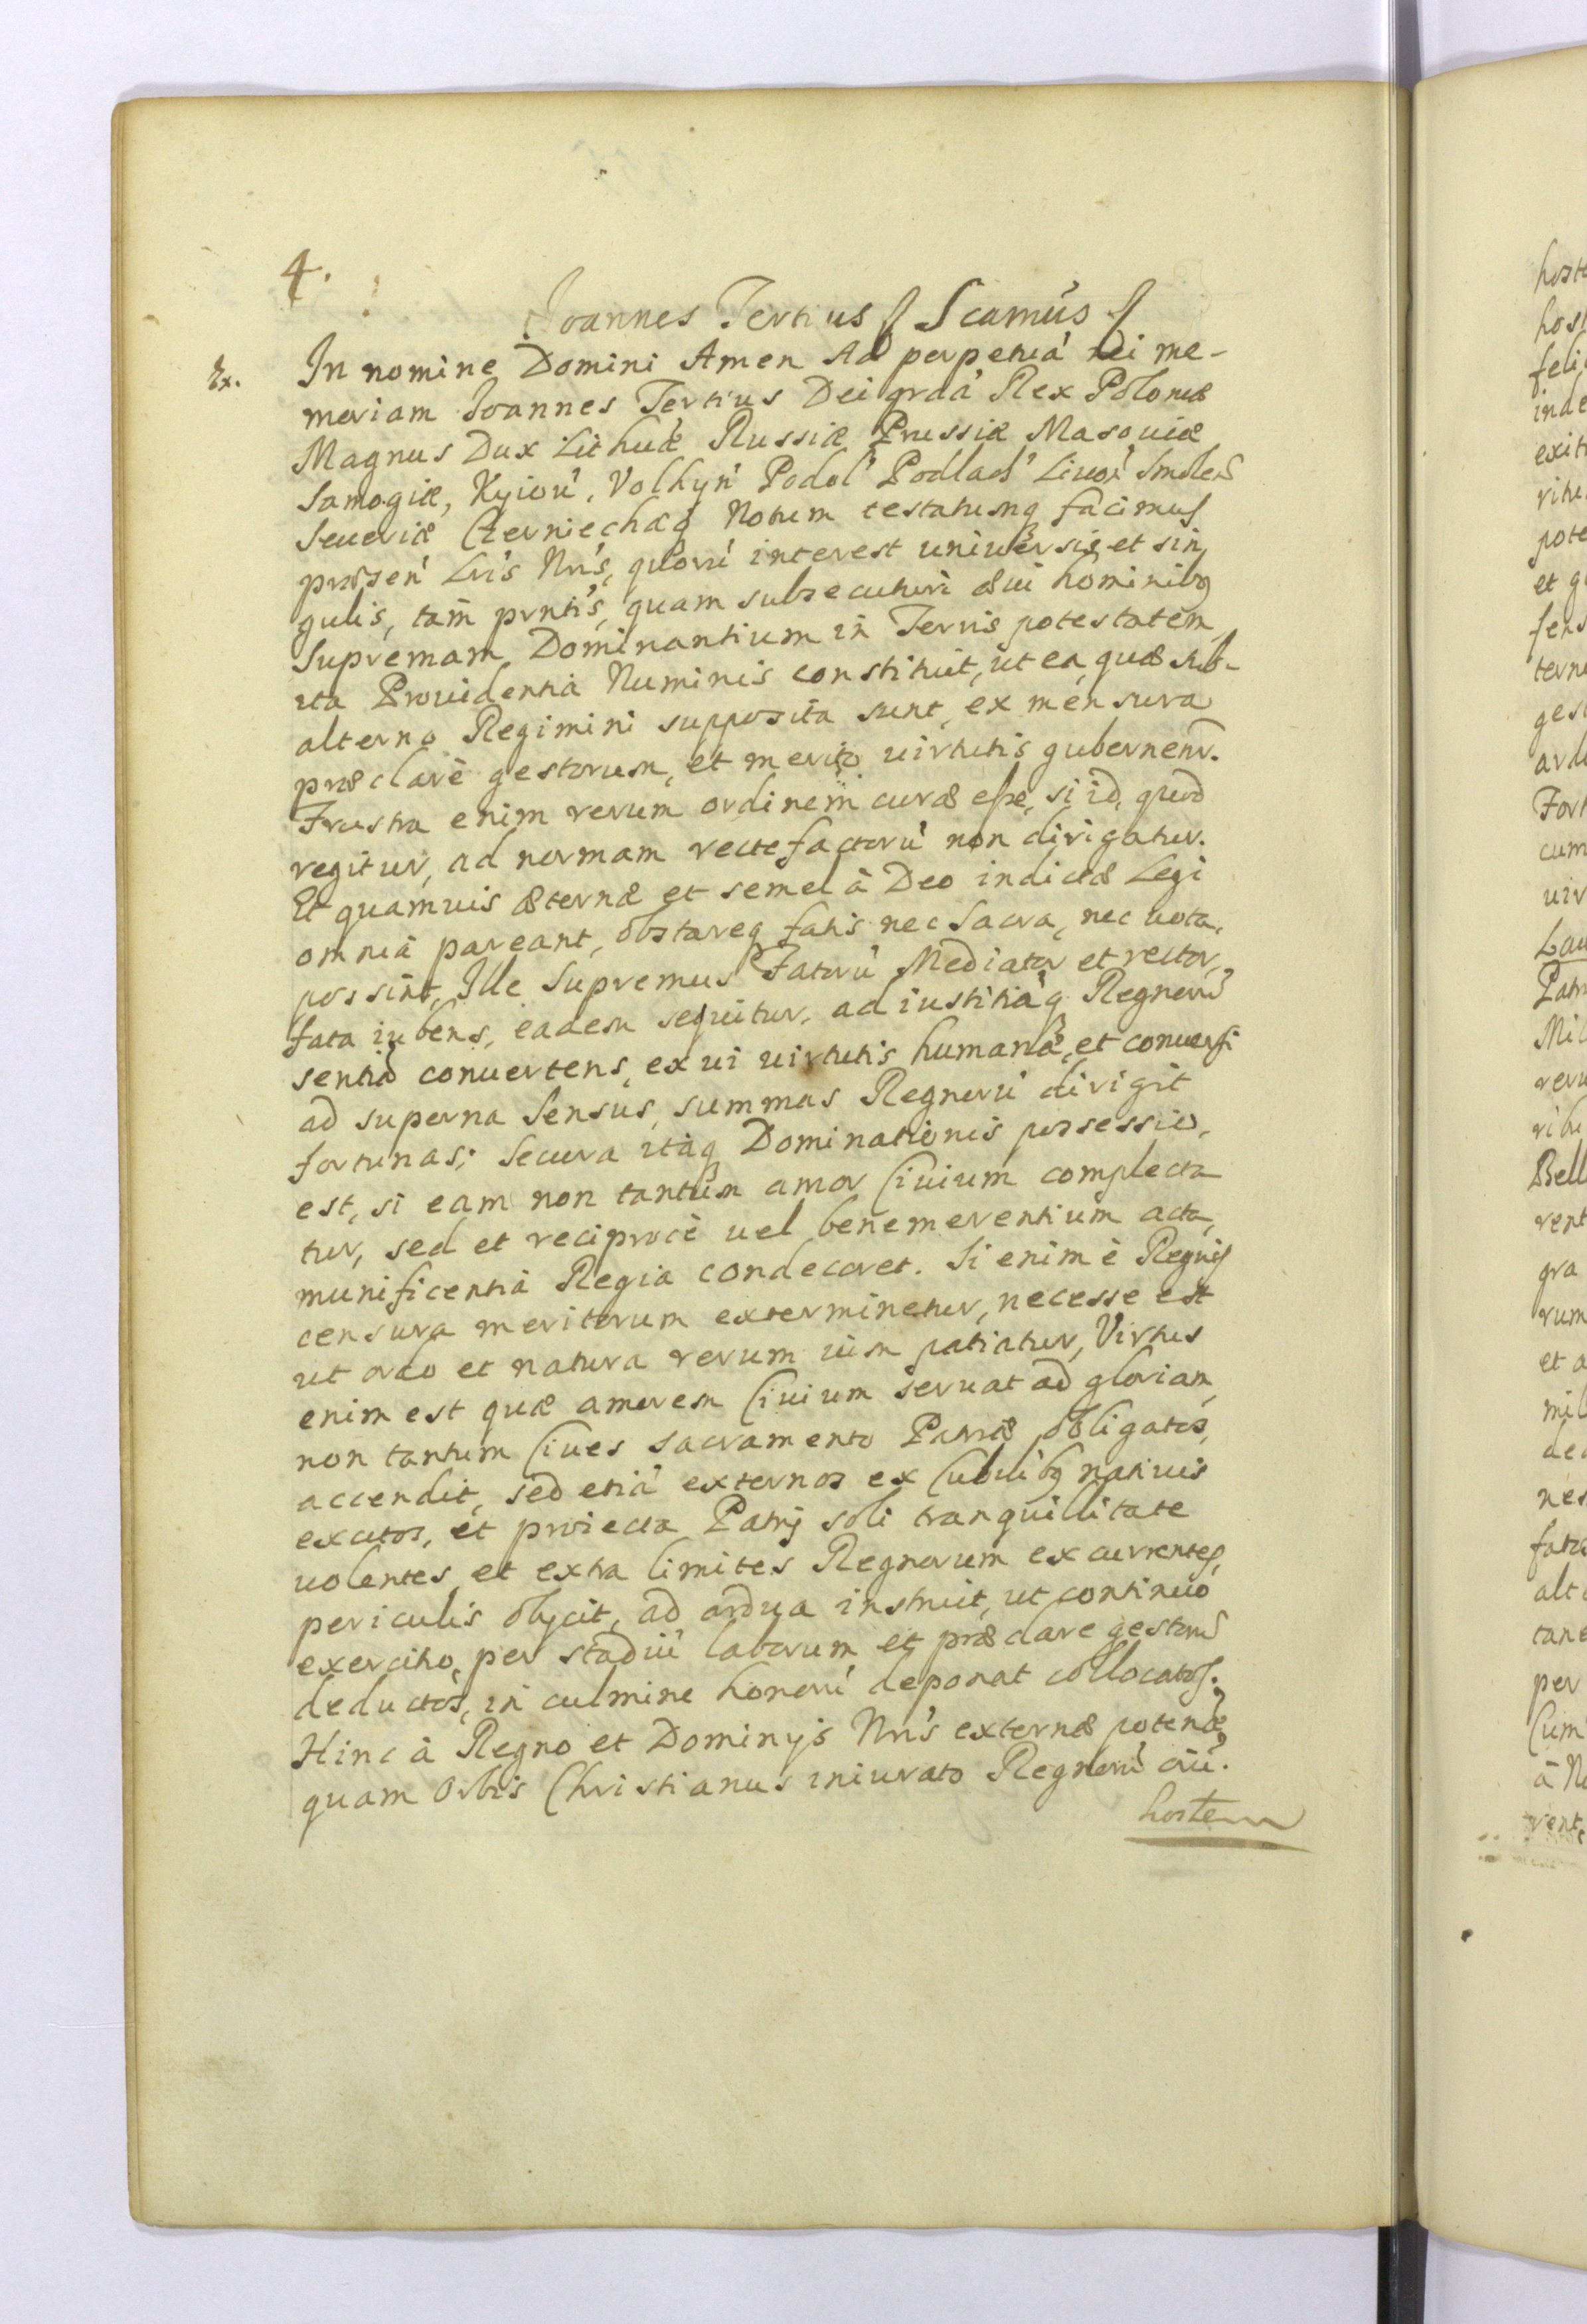 4.
Joannes Tertius // Scamus //
Ex. In nomine Domini Amen Ad perpetuá Rei me-
moriam Joannes Tertius Dei graá Rex Poloniæ
Magnus Dux Lithuæ Russiæ Prussiæ Masouiæ
Samogiæ, Kyiou', Volhyn' Podol' Podlach' Liuon' Smolen'
Seueriæ Czerniechæq Notum testatumq facimus
præsen' Lris Nris, quorú interest uniuersis et sin
gulis, tam pnntis, quam subsecuturi æui hominibq
Supremam Dominantium in Terris potestatem,
ita Prouidentia Numinis constituit, ut ea, quæ sub-
alterno Regimini supposita sunt, ex mensura
præclarè gestorum, et merito uirtutis gubernentr.
Frustra enim rerum ordinem curæ esse, si id, quod
regitur, ad normam rectefactorú non dirigatur.
Et quamuis æternæ et semel à Deo indictæ Legi
omnia pareant, obstareq fatis nec Sacra, nec uota,
possint, Ille Supremus Fatorú Mediator et rector,
fata iubens, eadem sequitur, ad iustitiáq Regnorú
sentiá conuertens, ex ui uirtutis humanæ, et conuersi
ad superna Sensus, summas Regnorú dirigit
fortunas; Secura itáq Dominationis possessio,
est, si eam non tantùm amor Ciuium complecta
tur, sed et reciprocè uel benemerentium acta,
munificentiá Regia condecoret. Si enim è Regnis
censura meritorum exterminetur, necesse est
ut ordo et natura rerum uim patiatur, Virtus
enim est quæ amorem Ciuium seruat ad gloriam,
non tantùm Ciues sacramento Patriæ obligatos,
accendit, sed etiá externos ex Cubilibq natiuis
excitos, et proiecta Patrij soli tranquillitate
uolentes et extra limites Regnorum excurrentes,
periculis obijcit, ad ardua instruit, ut continuo
exercitio, per stadiú laborum et præclare gestorú
deductos, in culmine honorú deponat collocatos.
Hinc à Regno et Dominijs Nris externæ potentiæ,
quam Orbis Christianus iniurato Regnorú
hostem